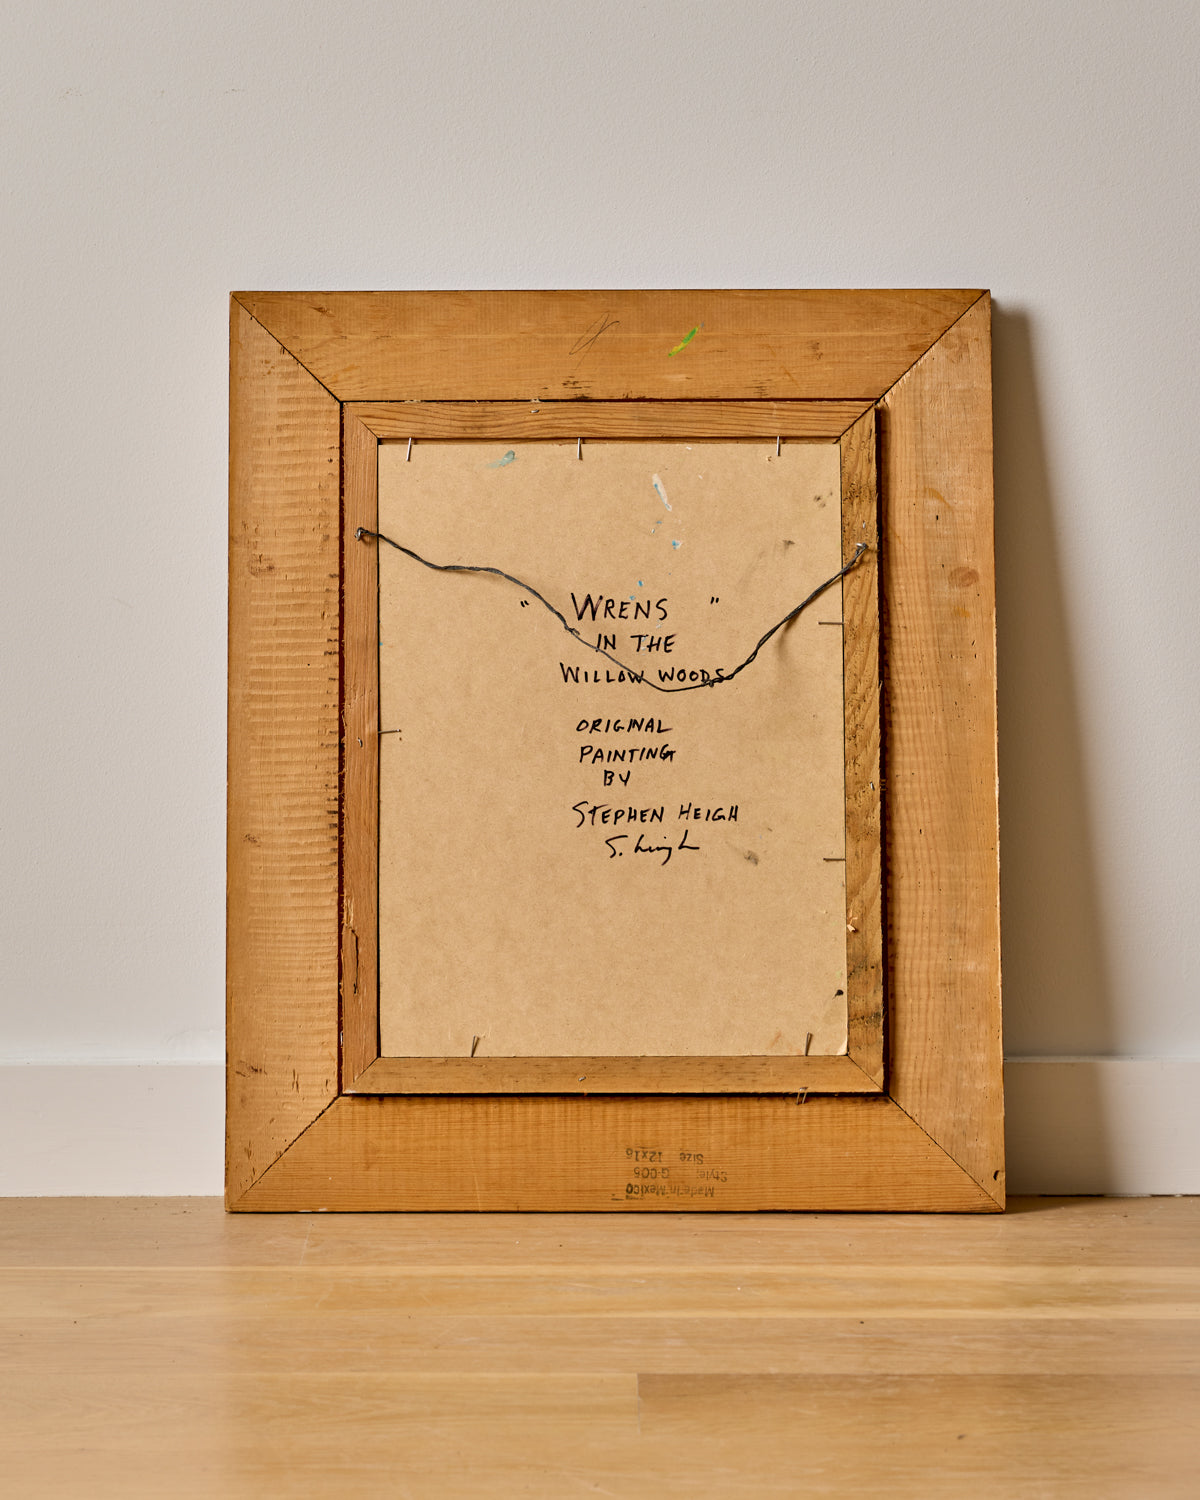 " WRENS "
IN THE
WILLOW WOODS
ORIGINAL
PAINTING
BY
STEPHEN HEIGH
S. Heigh
Made in Mexico
Style: G-006
Size 12x16